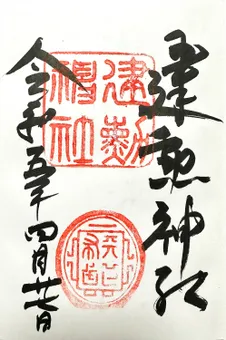 建勲神社
建勲
神社
令和五年四月廿七日